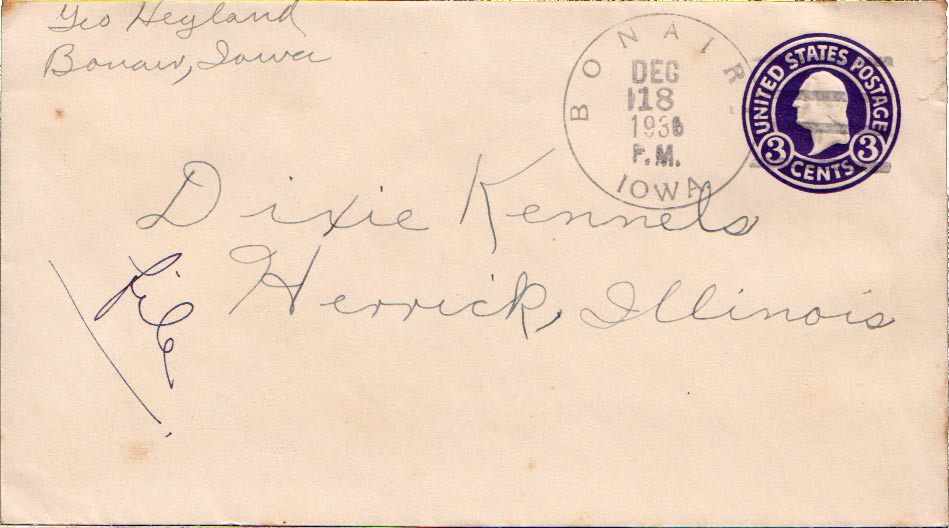 Geo Heyland
Bonair, Iowa
BONAIR
DEC
18
1936
P.M.
IOWA
UNITED STATES POSTAGE
3 CENTS 3
Dixie Kennels
Herrick, Illinois